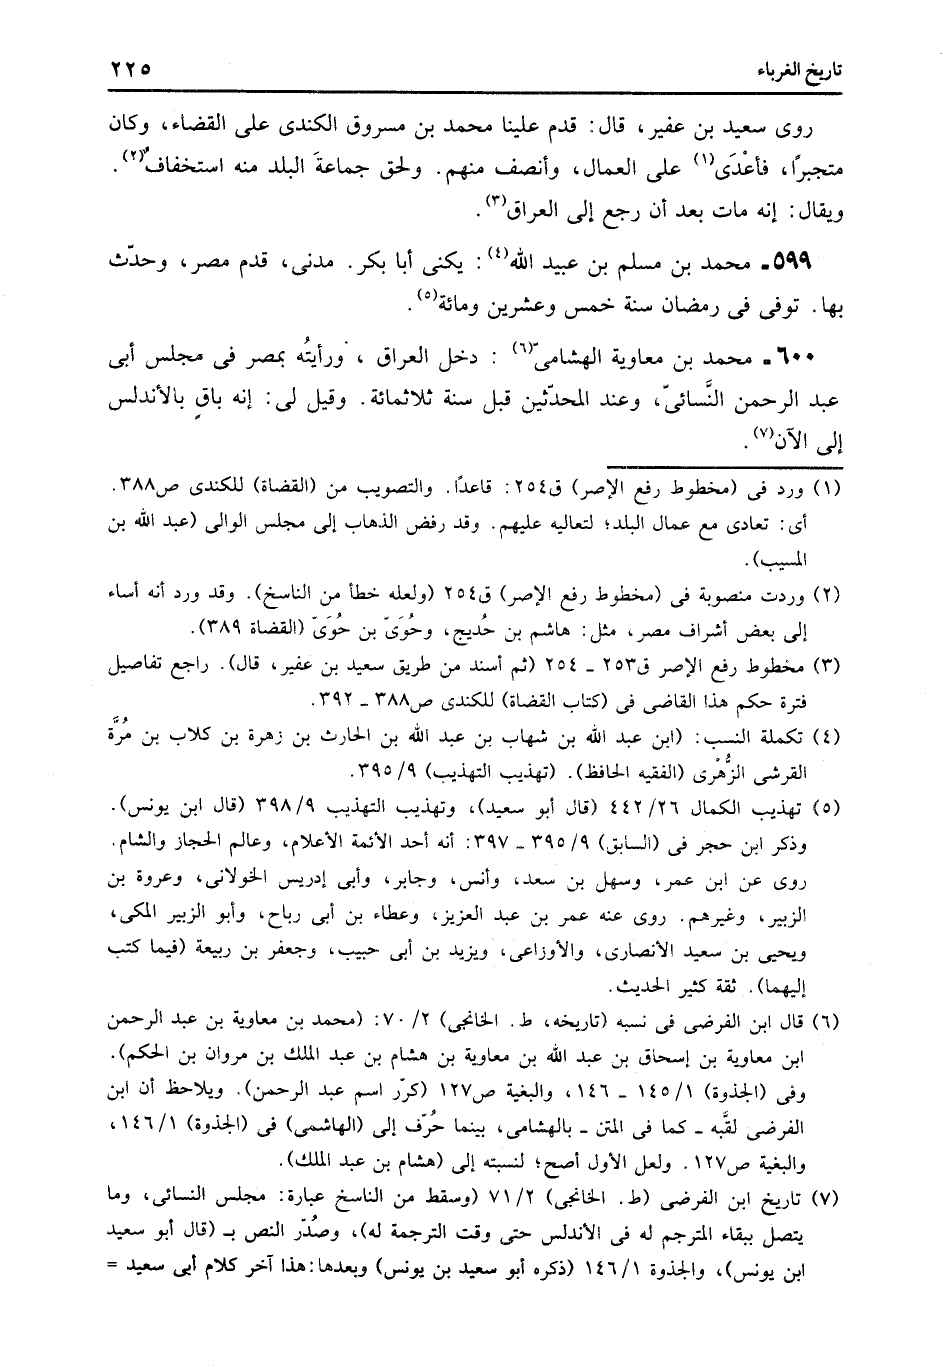 تاريخ الغرباء ٢٢٥
روى سعيد بن عفير، قال: قدم علينا محمد بن مسروق الكندى على القضاء، وكان
متجبرًا، فأعْدَى(١) على العمال، وأنصف منهم. ولحق جماعةَ البلد منه استخفافٌ(٢).
ويقال: إنه مات بعد أن رجع إلى العراق(٣).
٥٩٩ـ محمد بن مسلم بن عبيد الله(٤): يكنى أبا بكر. مدنى، قدم مصر، وحدّث
بها. توفى فى رمضان سنة خمس وعشرين ومائة(٥).
٦٠٠ـ محمد بن معاوية الهشامى(٦) : دخل العراق ، ورأيتُه بمصر فى مجلس أبى
عبد الرحمن النَّسائىّ، وعند المحدّثين قبل سنة ثلاثمائة. وقيل لى: إنه باقٍ بالأندلس
إلى الآن(٧).
(١) ورد فى (مخطوط رفع الإصر) ق٢٥٤: قاعدًا. والتصويب من (القضاة) للكندى ص٣٨٨.
أى: تعادى مع عمال البلد؛ لتعاليه عليهم. وقد رفض الذهاب إلى مجلس الوالى (عبد الله بن
المسيب).
(٢) وردت منصوبة فى (مخطوط رفع الإصر) ق٢٥٤ (ولعله خطأ من الناسخ). وقد ورد أنه أساء
إلى بعض أشراف مصر، مثل: هاشم بن حُديج، وحُوَىّ بن حُوَىّ (القضاة ٣٨٩).
(٣) مخطوط رفع الإصر ق٢٥٣ ـ ٢٥٤ (ثم أسند من طريق سعيد بن عفير، قال). راجع تفاصيل
فترة حكم هذا القاضى فى (كتاب القضاة) للكندى ص٣٨٨ ـ ٣٩٢.
(٤) تكملة النسب: (ابن عبد الله بن شهاب بن عبد الله بن الحارث بن زهرة بن كلاب بن مُرَّة
القرشى الزُّهْرى (الفقيه الحافظ). (تهذيب التهذيب) ٣٩٥/٩.
(٥) تهذيب الكمال ٤٤٢/٢٦ (قال أبو سعيد)، وتهذيب التهذيب ٣٩٨/٩ (قال ابن يونس).
وذكر ابن حجر فى (السابق) ٣٩٥/٩ ـ ٣٩٧: أنه أحد الأئمة الأعلام، وعالم الحجاز والشام.
روى عن ابن عمر، وسهل بن سعد، وأنس، وجابر، وأبى إدريس الخولانى، وعروة بن
الزبير، وغيرهم. روى عنه عمر بن عبد العزيز، وعطاء بن أبى رباح، وأبو الزبير المكى،
ويحيى بن سعيد الأنصارى، والأوزاعى، ويزيد بن أبى حبيب، وجعفر بن ربيعة (فيما كتب
إليهما). ثقة كثير الحديث.
(٦) قال ابن الفرضى فى نسبه (تاريخه، ط. الخانجى) ٧٠/٢: (محمد بن معاوية بن عبد الرحمن
ابن معاوية بن إسحاق بن عبد الله بن معاوية بن هشام بن عبد الملك بن مروان بن الحكم).
وفى (الجذوة) ١٤٥/١ ـ ١٤٦، والبغية ص١٢٧ (كرّر اسم عبد الرحمن). ويلاحظ أن ابن
الفرضى لقَّبه ـ كما فى المتن ـ بالهشامى، بينما حُرّف إلى (الهاشمى) فى (الجذوة) ١٤٦/١،
والبغية ص١٢٧. ولعل الأول أصح؛ لنسبته إلى (هشام بن عبد الملك).
(٧) تاريخ ابن الفرضى (ط. الخانجى) ٧١/٢ (وسقط من الناسخ عبارة: مجلس النسائى، وما
يتصل ببقاء المترجم له فى الأندلس حتى وقت الترجمة له)، وصُدّر النص بـ (قال أبو سعيد
ابن يونس)، والجذوة ١٤٦/١ (ذكره أبو سعيد بن يونس) وبعدها:هذا آخر كلام أبى سعيد =